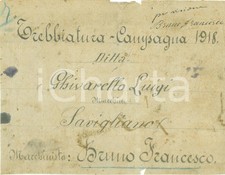 per errore
Bruno Francesco
Trebbiatura-Campagna 1918.
Ditta
Chiaretto Luigi
Savigliano
Macchinista: Bruno Francesco.
iCharta